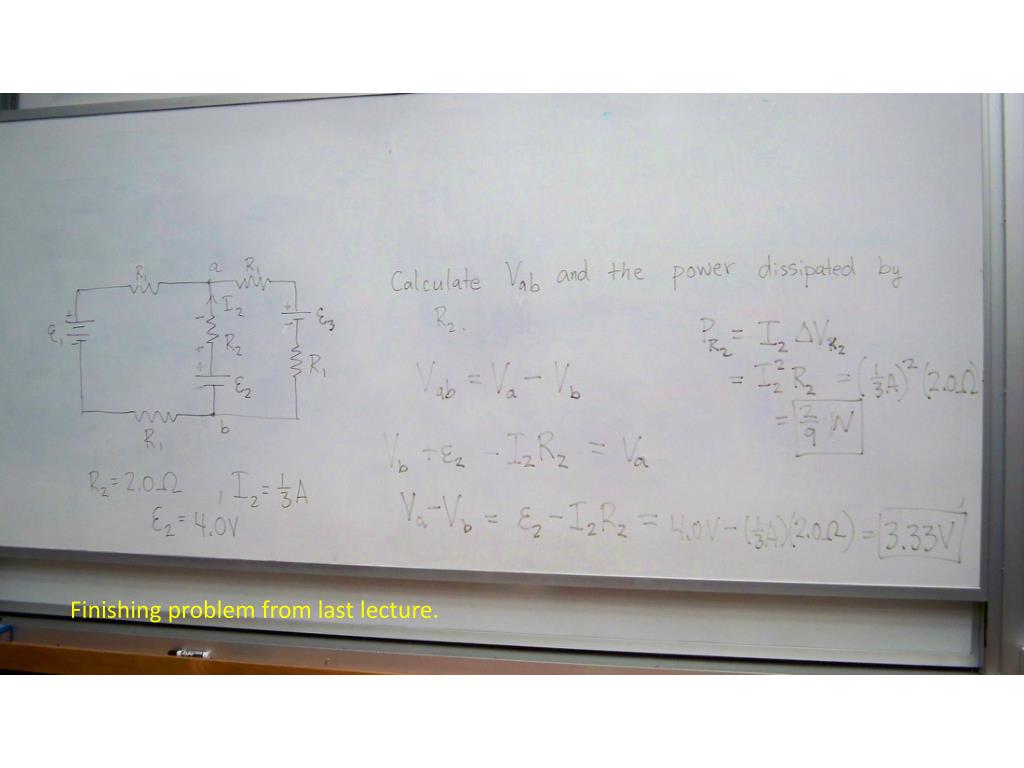 R₁
a
R₁
+
ε₁
-
I₂
R₂
+
+
-
ε₃
R₁
ε₂
R₁
b
R₂ = 2.0Ω , I₂ = 1/3 A
ε₂ = 4.0V
Calculate V_ab and the power dissipated by
R₂.
V_ab = V_a - V_b
V_b + ε₂ - I₂R₂ = V_a
V_a - V_b = ε₂ - I₂R₂ = 4.0V - (1/3 A)(2.0Ω) = 3.33V
P_R₂ = I₂ ΔV_R₂
= I₂² R₂ = (1/3 A)² (2.0Ω)
= 2/9 W
Finishing problem from last lecture.